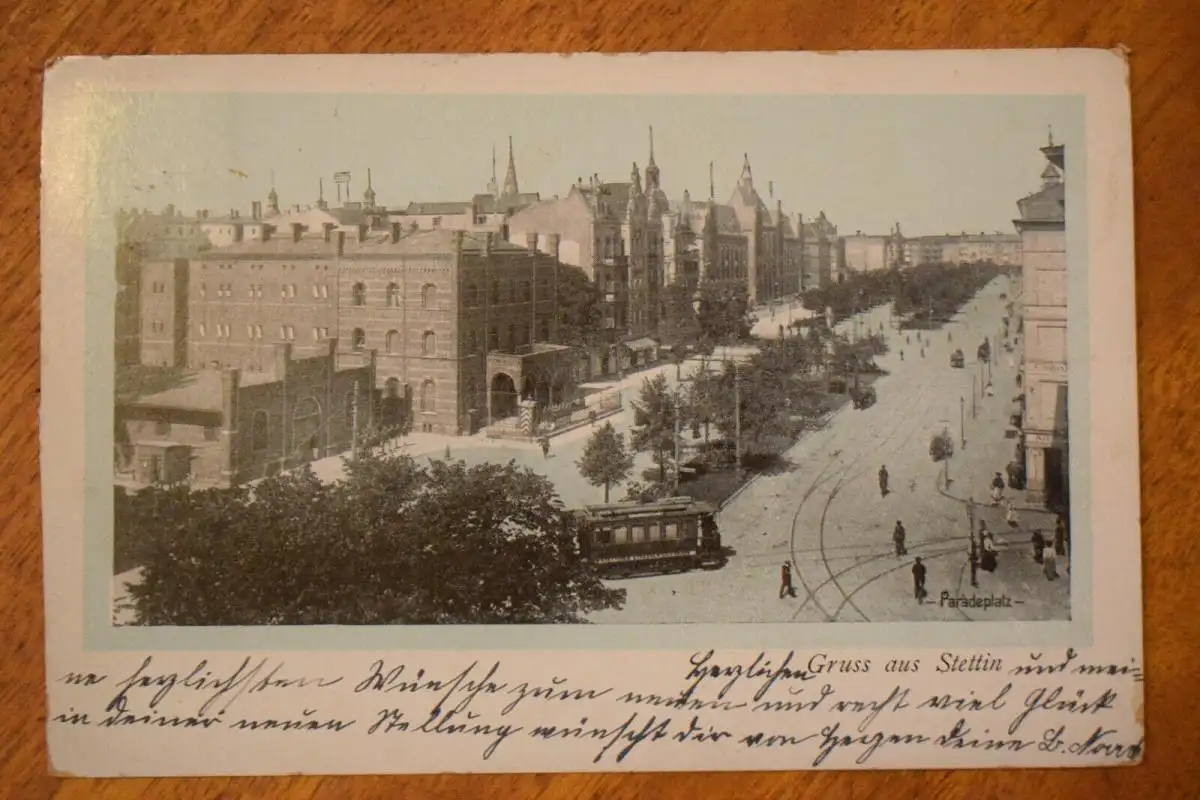 — Paradeplatz —
Herzlichen Gruss aus Stettin und mei-
ne herzlichsten Wünsche zum neuen und recht viel Glück
in deiner neuen Stellung wünscht dir von Herzen deine B.